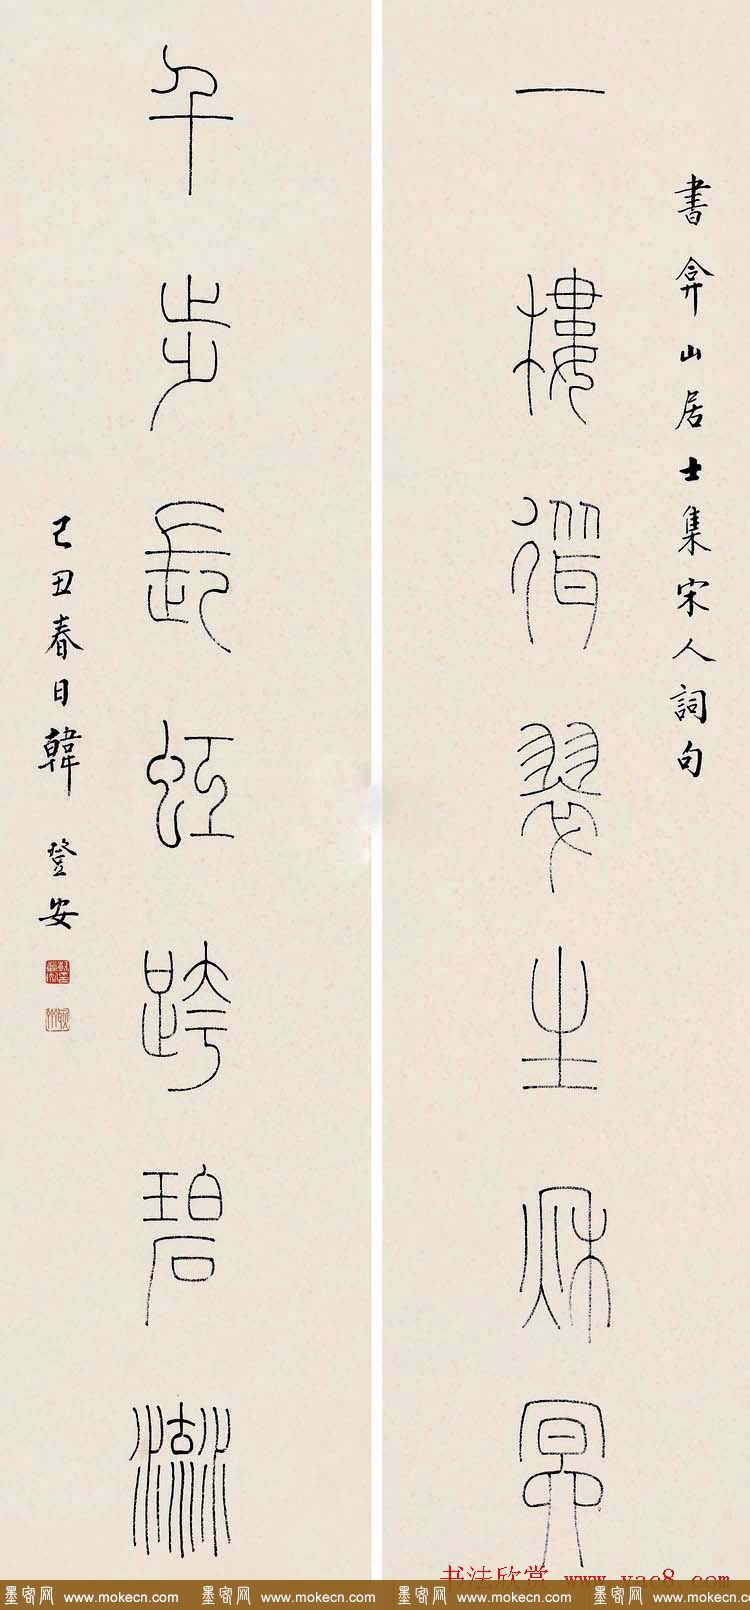 書弇山居士集宋人詞句
一樓翠生秋冥
千步長虹跨碧流
己丑春日韓登安
书法欣赏 www.yac8.com
墨客网 www.mokecn.com 墨客网 www.mokecn.com 墨客网 www.mokecn.com 墨客网 www.mokecn.com